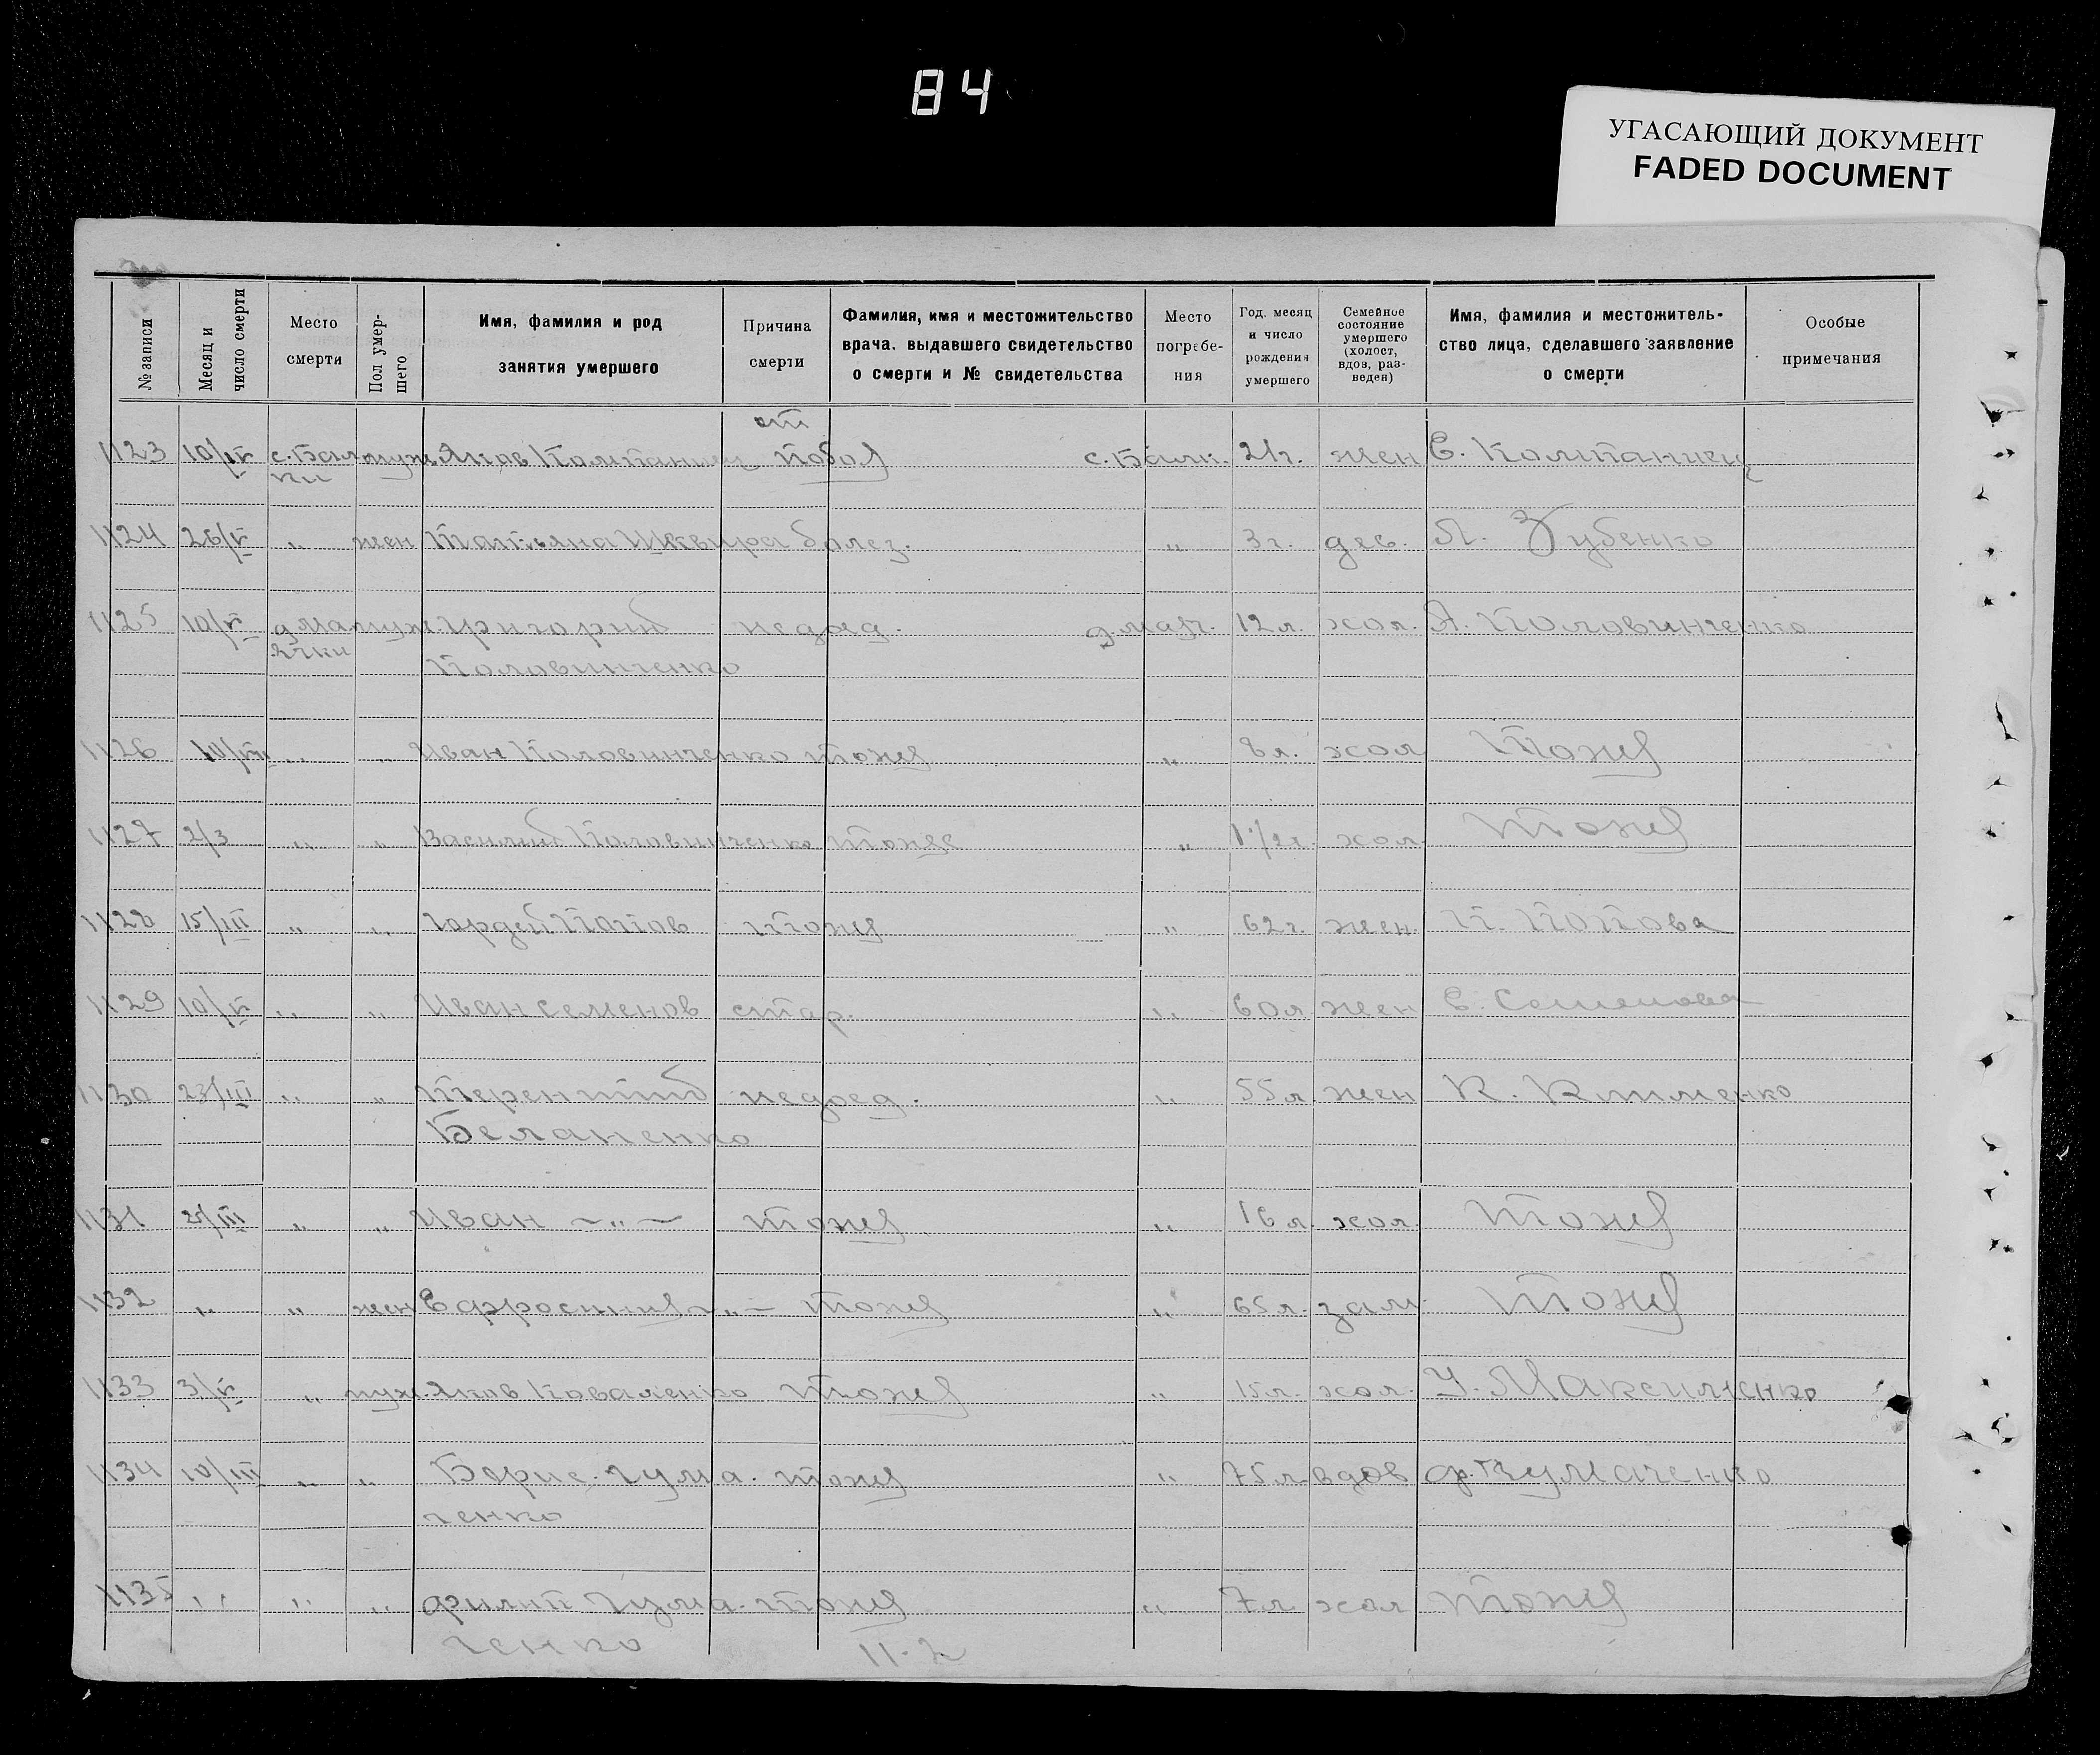 84
УГАСАЮЩИЙ ДОКУМЕНТ
FADED DOCUMENT
№ записи
Месяц и число смерти
Место смерти
Пол умер-шего
Имя, фамилия и род занятия умершего
Причина смерти
Фамилия, имя и местожительство врача. выдавшего свидетельство о смерти и № свидетельства
Место погребе-ния
Год. месяц и число рождения умершего
Семейное состояние умершего (холост, вдов, раз-веден)
Имя, фамилия и местожитель-ство лица, сделавшего заявление о смерти
Особые примечания
от
1123 10/IV с. Бал муж Яков Компаниец побоя с. Балк. 21г. жен Е. Компаниец
ки
1124 26/V " жен Татьяна Шквира болез. " 3г. дев. Л. Зубенко
1125 10/V д Ма муж. Григорий недоед. д. Маяч. 12л. хол. А. Половинченко
ячки Половинченко
1126 10/III " " Иван Половинченко тоже " 8л. хол Тоже
1127 2/3 " " Василий Половинченко тоже " 1 1/2г. хол. Тоже
1128 15/III " " Гордей Попов тоже " 62г. жен. П. Попова
1129 10/V " " Иван Семенов стар. " 60л. жен Е. Семенова
1130 23/III " " Терентий недоед. " 55л. жен К.
Беланенко
1131 2/III " " Иван —"— тоже " 16л. хол. Тоже
1132 " " жен Ефросиния —"— тоже " 65л. зам. Тоже
1133 3/V " муж. Яков Коваленко тоже " 15л. хол. У. Максименко
1134 10/III " " Борис Гума- тоже " 75л. вдов Ф. Гумаченко
ченко
1135 " " " Филип Гума- тоже " 7л. хол Тоже
ченко 11-2